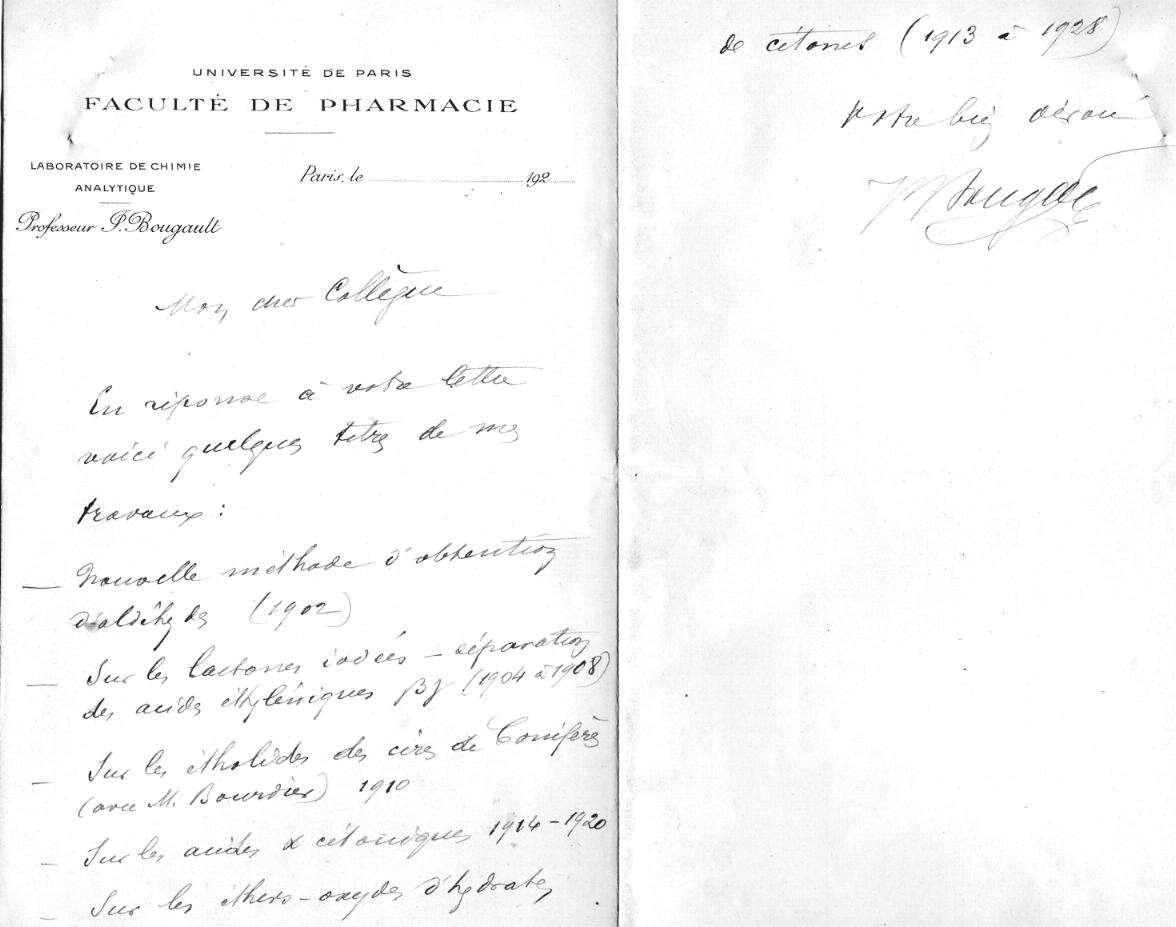 UNIVERSITÉ DE PARIS
FACULTÉ DE PHARMACIE
LABORATOIRE DE CHIMIE
ANALYTIQUE
Professeur J. Bougault
Paris, le 192
Mon cher Collègue
En réponse à votre lettre
voici quelques titres de mes
travaux :
— Nouvelle méthode d'obtention
d'aldéhydes (1902)
— Sur les lactones iodées – séparation
des acides éthyléniques βγ (1904 à 1908)
— Sur les étholides des cires de Conifères
(avec M. Bourdier) 1910
— Sur les acides α cétoniques 1914–1920
— Sur les éthers-oxydes d'hydrates
de cétones (1913 à 1928)
Votre bien dévoué
J Bougault